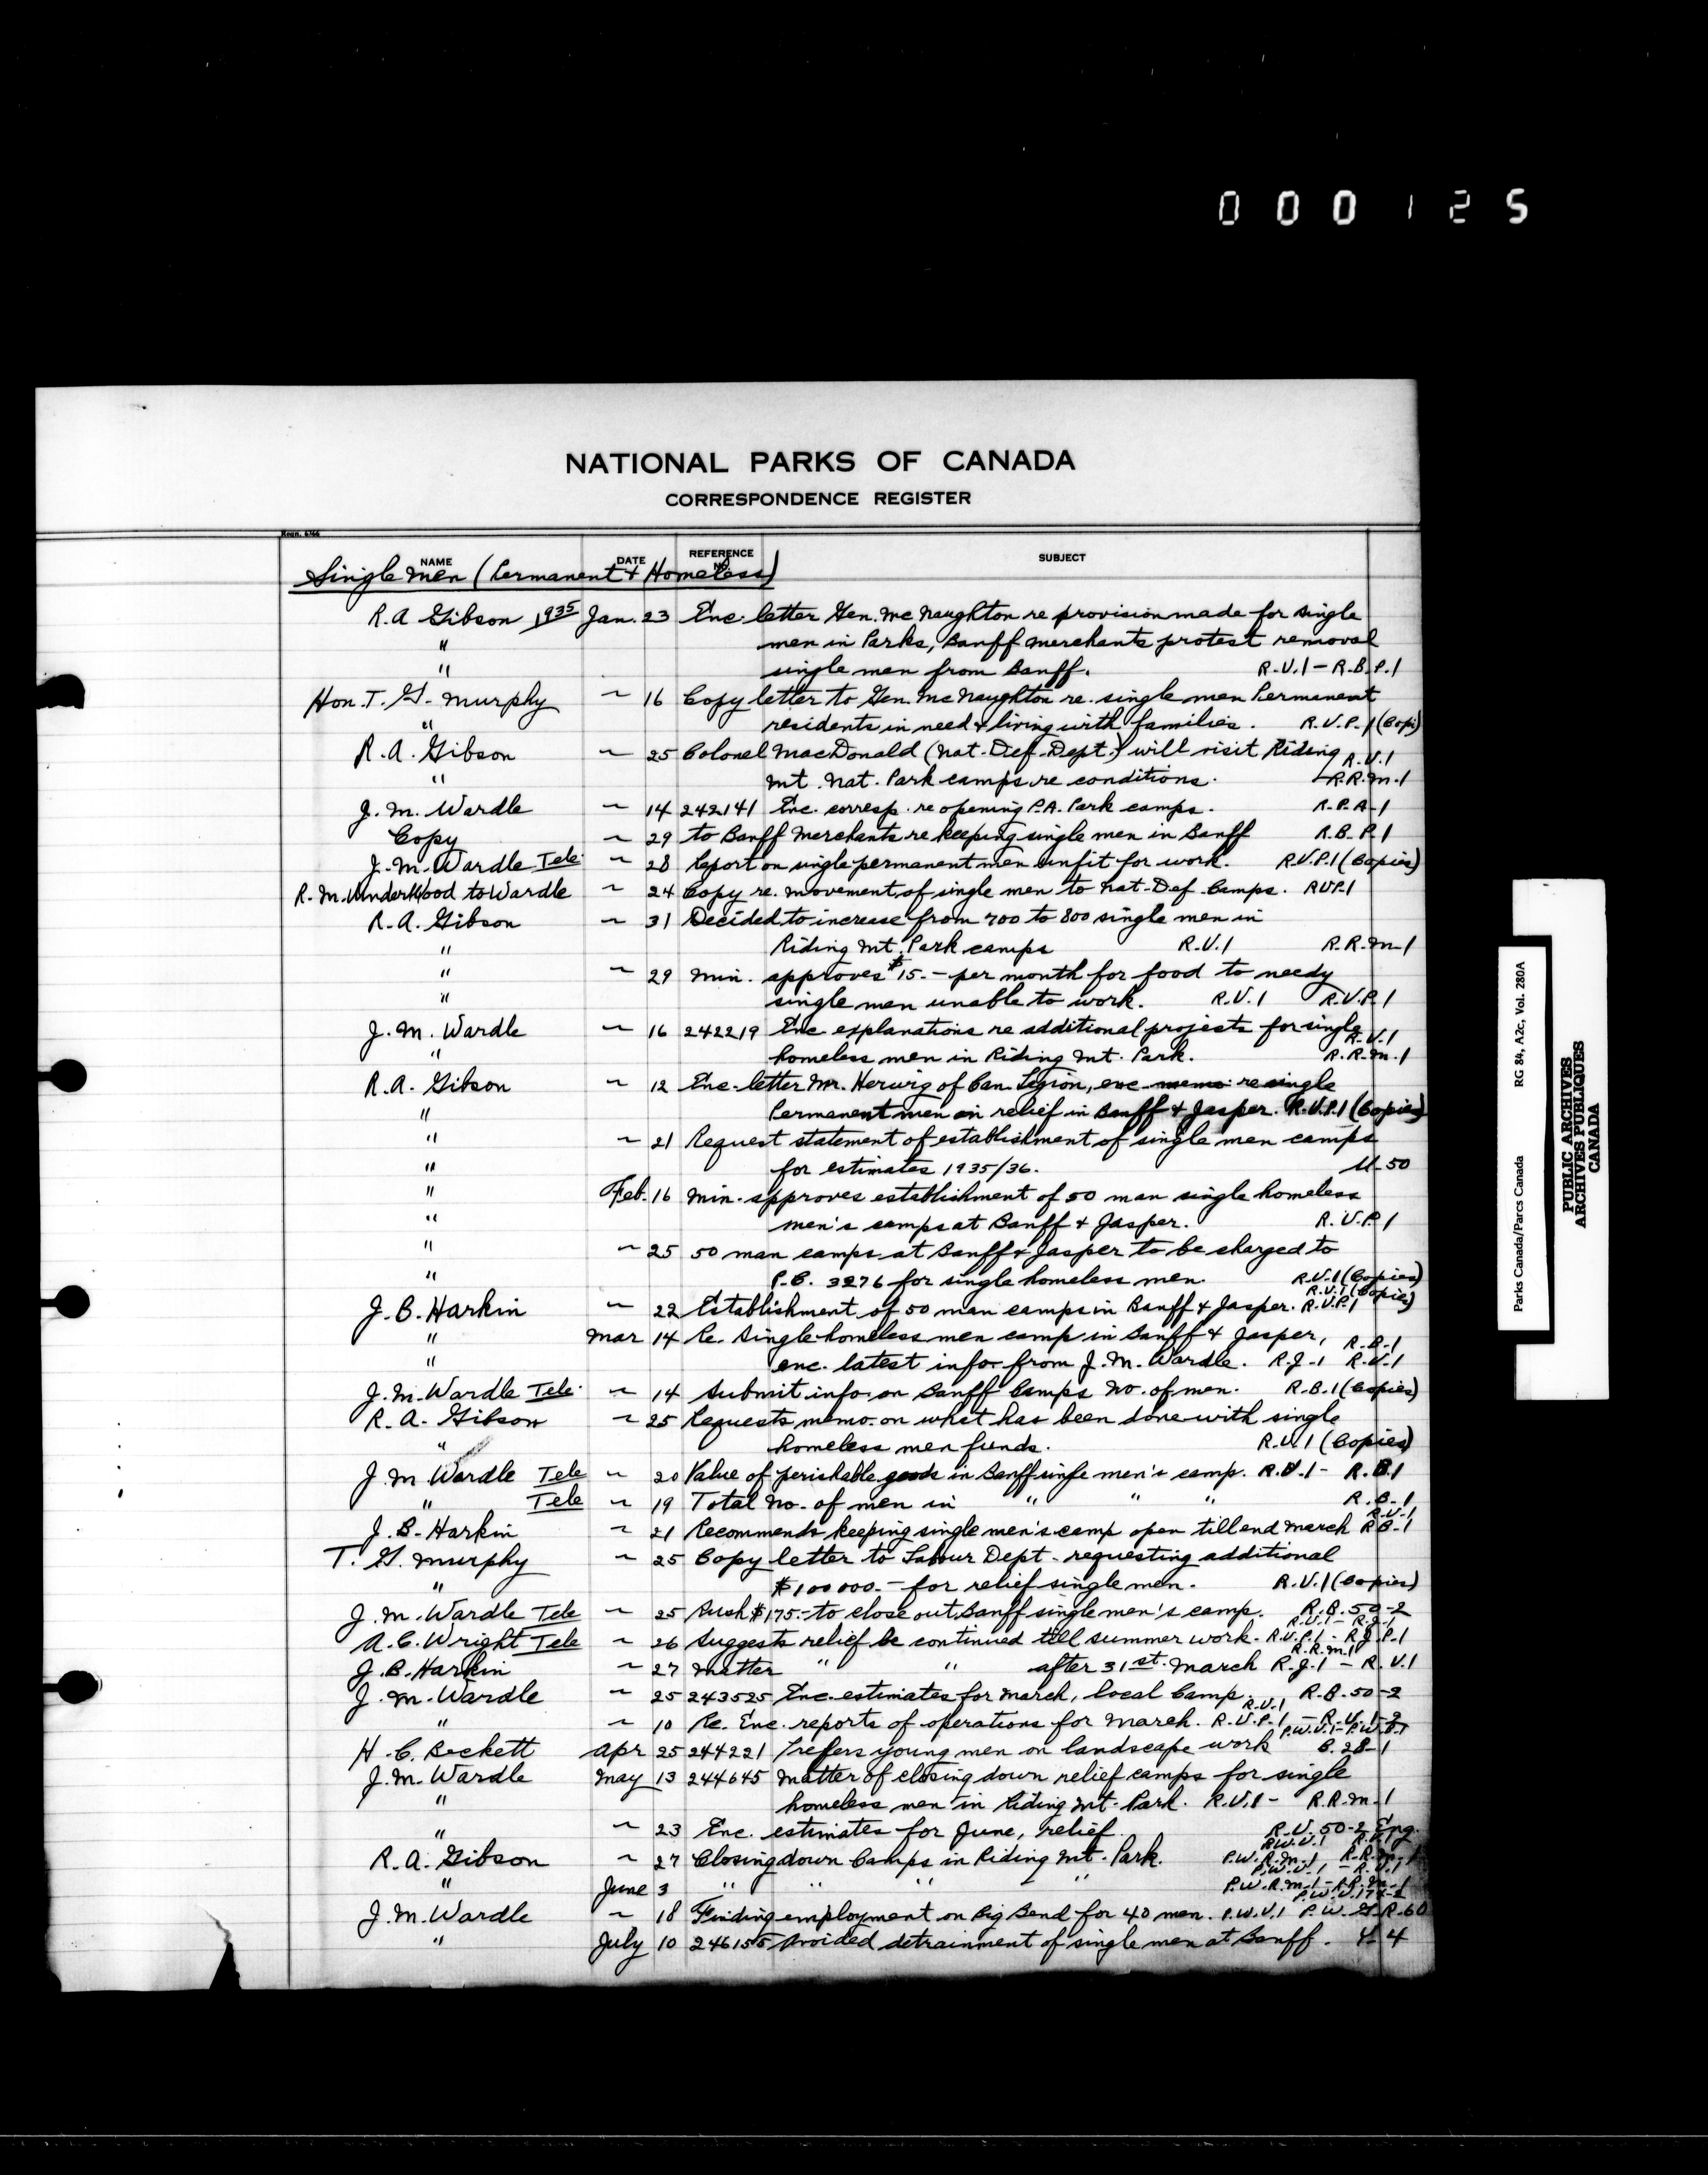 000125
NATIONAL PARKS OF CANADA
CORRESPONDENCE REGISTER
NAME DATE REFERENCE No. SUBJECT
Single Men (Permanent & Homeless)
R. A Gibson 1935 Jan. 23 Enc. letter Gen. McNaughton re provision made for single
" men in Parks, Banff merchants protest removal
" single men from Banff. R.V.1 - R.B.P.1
Hon. T. G. Murphy ~ 16 Copy letter to Gen. McNaughton re. single men Permanent
" residents in need & living with families. R.V.P.1 (Copi)
R. A. Gibson ~ 25 Colonel MacDonald (Nat. Def. Dept.) will visit Riding R.V.1
" Mt. Nat. Park camps re conditions. R.R.M.1
J. M. Wardle ~ 14 242141 Enc. corresp. re opening P.A. Park camps. R.P.A-1
Copy ~ 29 to Banff Merchants re keeping single men in Banff R.B.P.1
J. M. Wardle Tele. ~ 28 Report on single permanent men unfit for work. R.V.P.1 (Copies)
R. M. Underwood to Wardle ~ 24 Copy re. movement of single men to Nat-Def Camps. RVP.1
R. A. Gibson ~ 31 Decided to increase from 700 to 800 single men in
" Riding Mt. Park camps R.V.1 R.R.M-1
" ~ 29 Min. approves $15.- per month for food to needy
" single men unable to work. R.V.1 R.V.P.1
J. M. Wardle ~ 16 242219 Enc. explanations re additional projects for single R.V.1
" homeless men in Riding Mt. Park. R.R.M.1
R. A. Gibson ~ 12 Enc. letter Mr. Herwig of Can. Legion, enc memo re single
" Permanent men on relief in Banff & Jasper. R.V.P.1 (Copies)
" ~ 21 Request statement of establishment of single men camps
" for estimates 1935/36. U-50
" Feb. 16 Min. approves establishment of 50 man single homeless
" men's camps at Banff & Jasper. R.V.P.1
" ~ 25 50 man camps at Banff & Jasper to be charged to
" P.C. 3276 for single homeless men. R.V.1 (Copies)
J. B. Harkin ~ 22 Establishment of 50 man camps in Banff & Jasper. R.V.P.1 R.V.1 (Copies)
" Mar 14 Re. Single homeless men camp in Banff & Jasper, R.B.1
" enc. latest info from J. M. Wardle. R.J-1 R.V.1
J. M. Wardle Tele. ~ 14 Submit info on Banff Camps No. of men. R.B.1 (Copies)
R. A. Gibson ~ 25 Requests memo. on what has been done with single
" homeless men funds. R.V.1 (Copies)
J. M Wardle Tele ~ 20 Value of perishable goods in Banff single men's camp. R.V.1- R.B.1
" Tele ~ 19 Total No. of men in " " " R.B.1
J. B. Harkin ~ 21 Recommends keeping single men's camp open till end March R.V.1 R.B-1
T. G. Murphy ~ 25 Copy letter to Labour Dept. requesting additional
" $100000.- for relief single men. R.V.1 (Copies)
J. M. Wardle Tele ~ 25 Rush $175.- to close out Banff single men's camp. R.B.50-2
A. C. Wright Tele ~ 26 Suggests relief be continued till summer work. R.V.1 - R.J.1 R.V.P.1 - R.J.P.1
J. B. Harkin ~ 27 Matter " " after 31st March R.R.M.1 R.J.1 - R.V.1
J. M. Wardle ~ 25 243525 Enc. estimates for March, local Camp. R.B.50-2
" ~ 10 Re. Enc. reports of operations for March. R.V.1 R.V.P.1 - R.V.1-2
H. C. Beckett Apr 25 244221 Prefers young men on landscape work B.28-1
J. M. Wardle May 13 244645 Matter of closing down relief camps for single
" homeless men in Riding Mt. Park. R.V.1 - R.R.M.1
" ~ 23 Enc. estimates for June, relief. R.V.50-2 Eng.
R. A. Gibson ~ 27 Closing down Camps in Riding Mt. Park. P.W.R.M.1 R.R.M.1
" June 3 " " " " P.W.V.1 - R.V.1 P.W.R.M.1 - R.R.M.1
J. M. Wardle ~ 18 Finding employment on Big Bend for 40 men. P.W.V.1 P.W. G.R.60
" July 10 246155 Avoided detrainment of single men at Banff. Y-4
Parks Canada/Parcs Canada RG 84, A2c, Vol. 280A
PUBLIC ARCHIVES
ARCHIVES PUBLIQUES
CANADA